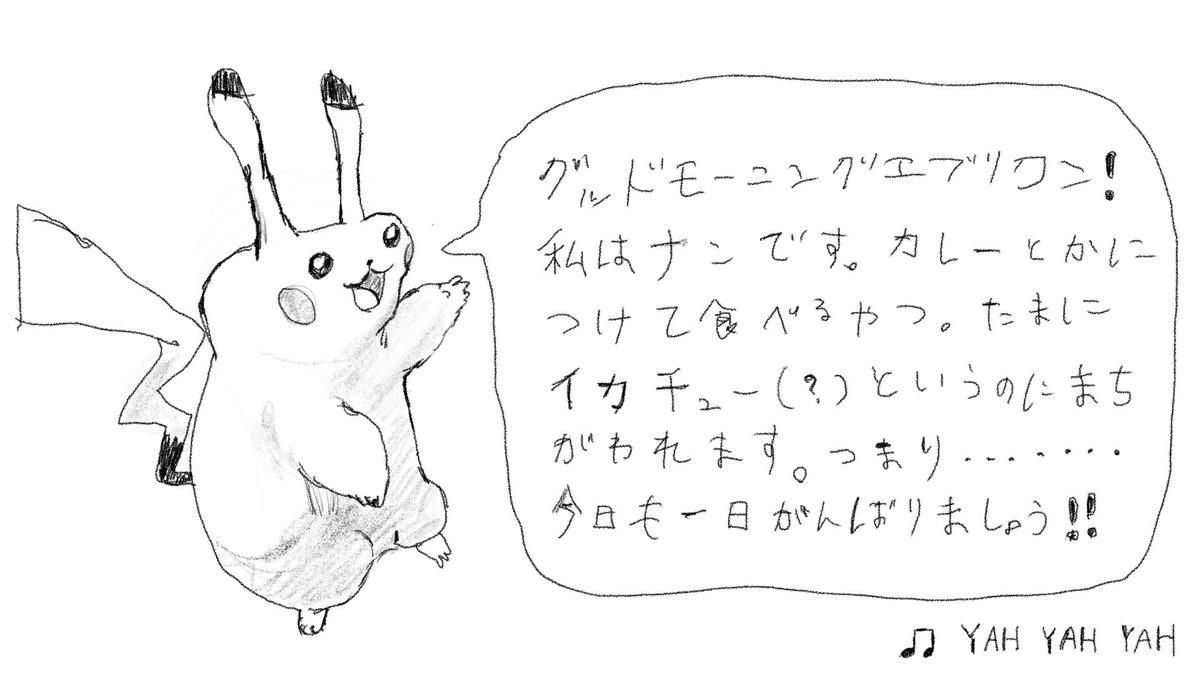 グッドモーニングエブリワン!
私はナンです。カレーとかに
つけて食べるやつ。たまに
イカチュー(?)というのにまち
がわれます。つまり・・・・・・・
今日も一日がんばりましょう!!
♫ YAH YAH YAH